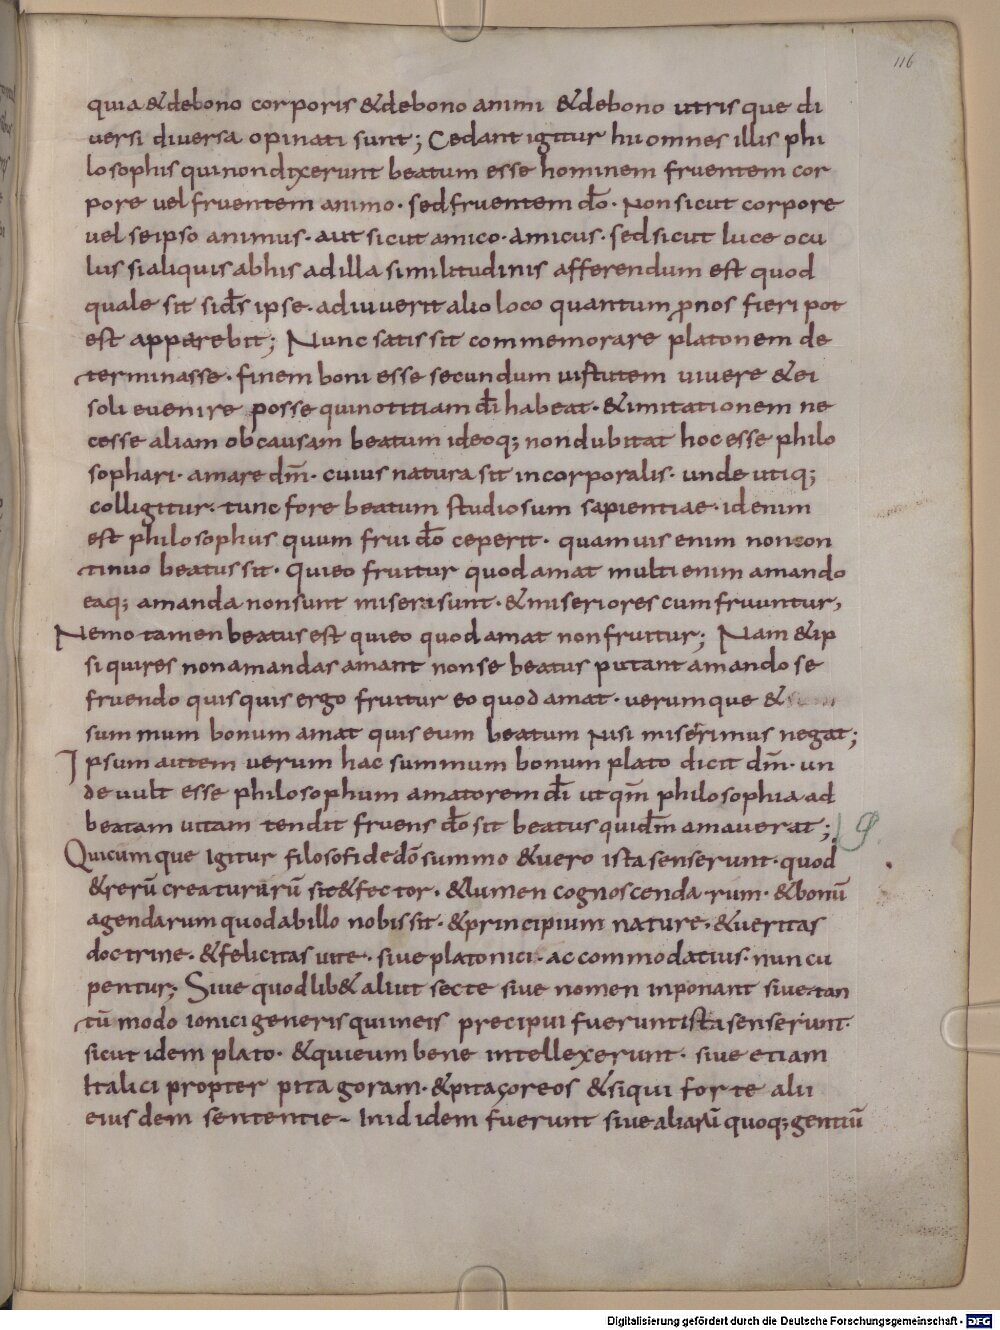 116
quia &debono corporis &debono animi &debono utrisque di
versi diversa opinati sunt; Cedant igitur hii omnes illis phi
losophis quinondixerunt beatum esse hominem fruentem cor
pore vel fruentem animo· sedfruentem do̅· Non sicut corpore
uel seipso animus· aut sicut amico· amicus· sedsicut luce ocu
lus sialiquis abhis adilla similitudinis afferendum est quod
quale sit sid̅s ipse· adiuuerit alio loco quantum p̱nos fieri pot
est apparebit; Nunc satis sit commemorare platonem de
terminasse· finem boni esse secundum uirtutem uiuere &ei
soli euenire posse quinotitiam di̅ habeat· &imitationem ne
cesse aliam ob causam beatum ideoq; nondubitat hoc esse philo
sophari· amare dm̅· cuius natura sit incorporalis· unde utiq;
colligitur· tunc fore beatum studiosum sapientiae· idenim
est philosophus quum frui do̅ ceperit· quamuis enim non con
tinuo beatus sit· quieo fruitur quod amat multi enim amando
eaq; amanda non sunt miseri sunt· &miseriores cum fruuntur,
Nemo tamen beatus est quieo quod amat non fruitur; Nam &ip
si quires non amandas amant non se beatus putant amando se
fruendo quisquis ergo fruitur eo quod amat· verumque &
summum bonum amat quis eum beatum Nisi miserrimus negat;
Ipsum autem uerum hac summum bonum plato dicit dm̅· un
de uult esse philosophum amatorem di̅ ut qm̅ philosophia ad
beatam uitam tendit fruens do̅ sit beatus quidm̅ amauerat;
Quicumque Igitur filosofi dedo̅ summo &uero ista senserunt· quod
&rerū creaturarū sit&fector· &lumen cognoscenda·rum· &bonū
agendarum quodabillo nobis sit· &principium nature· &ueritas
doctrine· &felicitas uite· siue platonici· accommodatius· nuncu
pentur; Siue quodlib& aliut secte siue nomen inponant siue tan
tū modo ionici generis qui in eis precipui fuerunt ista senserunt·
sicut idem plato· &quieum bene intellexerunt· siue etiam
Italici propter pitagoram· &pitaçoreos &siqui forte alii
eiusdem sententie· Inid idem fuerunt siue aliarū quoq; gentiū
Digitalisierung gefördert durch die Deutsche Forschungsgemeinschaft - DFG